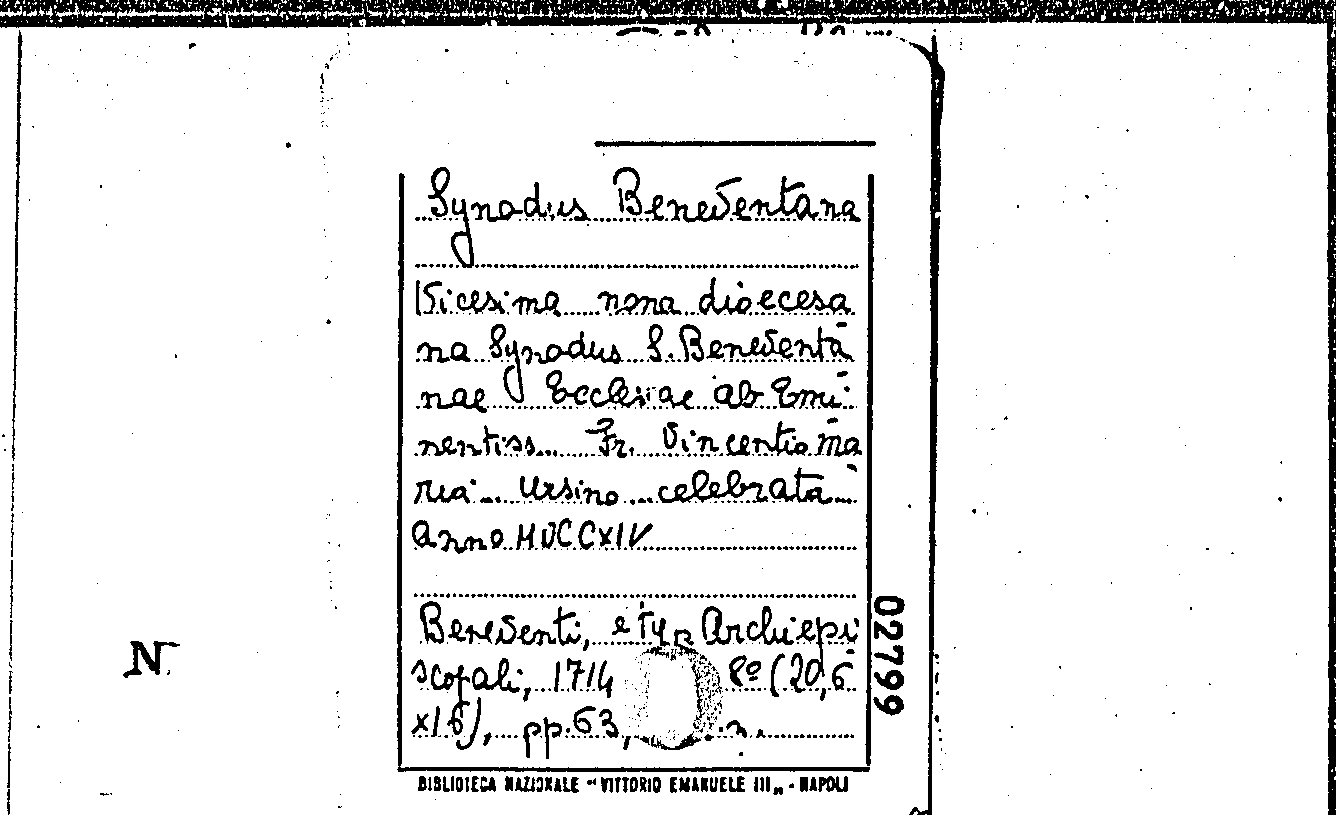 Synodus Beneventana
Vicesima nona dioecesa
na Synodus S. Beneventa
nae Ecclesiae ab Emi-
nentiss... Fr. Vincentio Ma
ria... Ursino... celebrata...
Anno MDCCXIV
Beneventi, e typ Archiepi
scopali, 1714 8º (20,6
x16), pp. 63,
BIBLIOTECA NAZIONALE "VITTORIO EMANUELE III„ - NAPOLI
02799
N